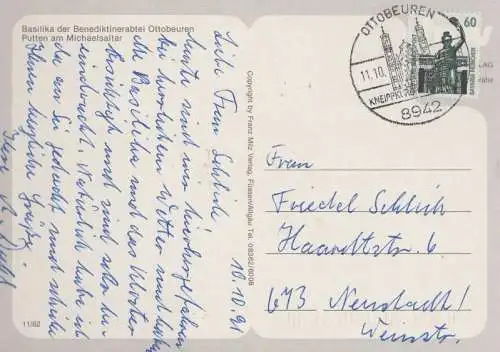 Basilika der Benediktinerabtei Ottobeuren
Putten am Michaelsaltar
10.10.91
Liebe Frau Schlich
heute sind wir hierhergefahren
bei herrlichem Wetter und haben
die Basilika und das Kloster
besichtigt und sind sehr be-
eindruckt. Natürlich habe ich
da an Sie gedacht und schicke
Ihnen herzliche Grüße.
Ihre
11/62
Copyright by Franz Milz Verlag, Füssen/Allgäu Tel. 08362/6006
OTTOBEUREN
11.10.
KNEIPPKURORT
8942
60
Frau
Friedel Schlich
Haardtstr. 6
673 Neustadt/
Weinstr.